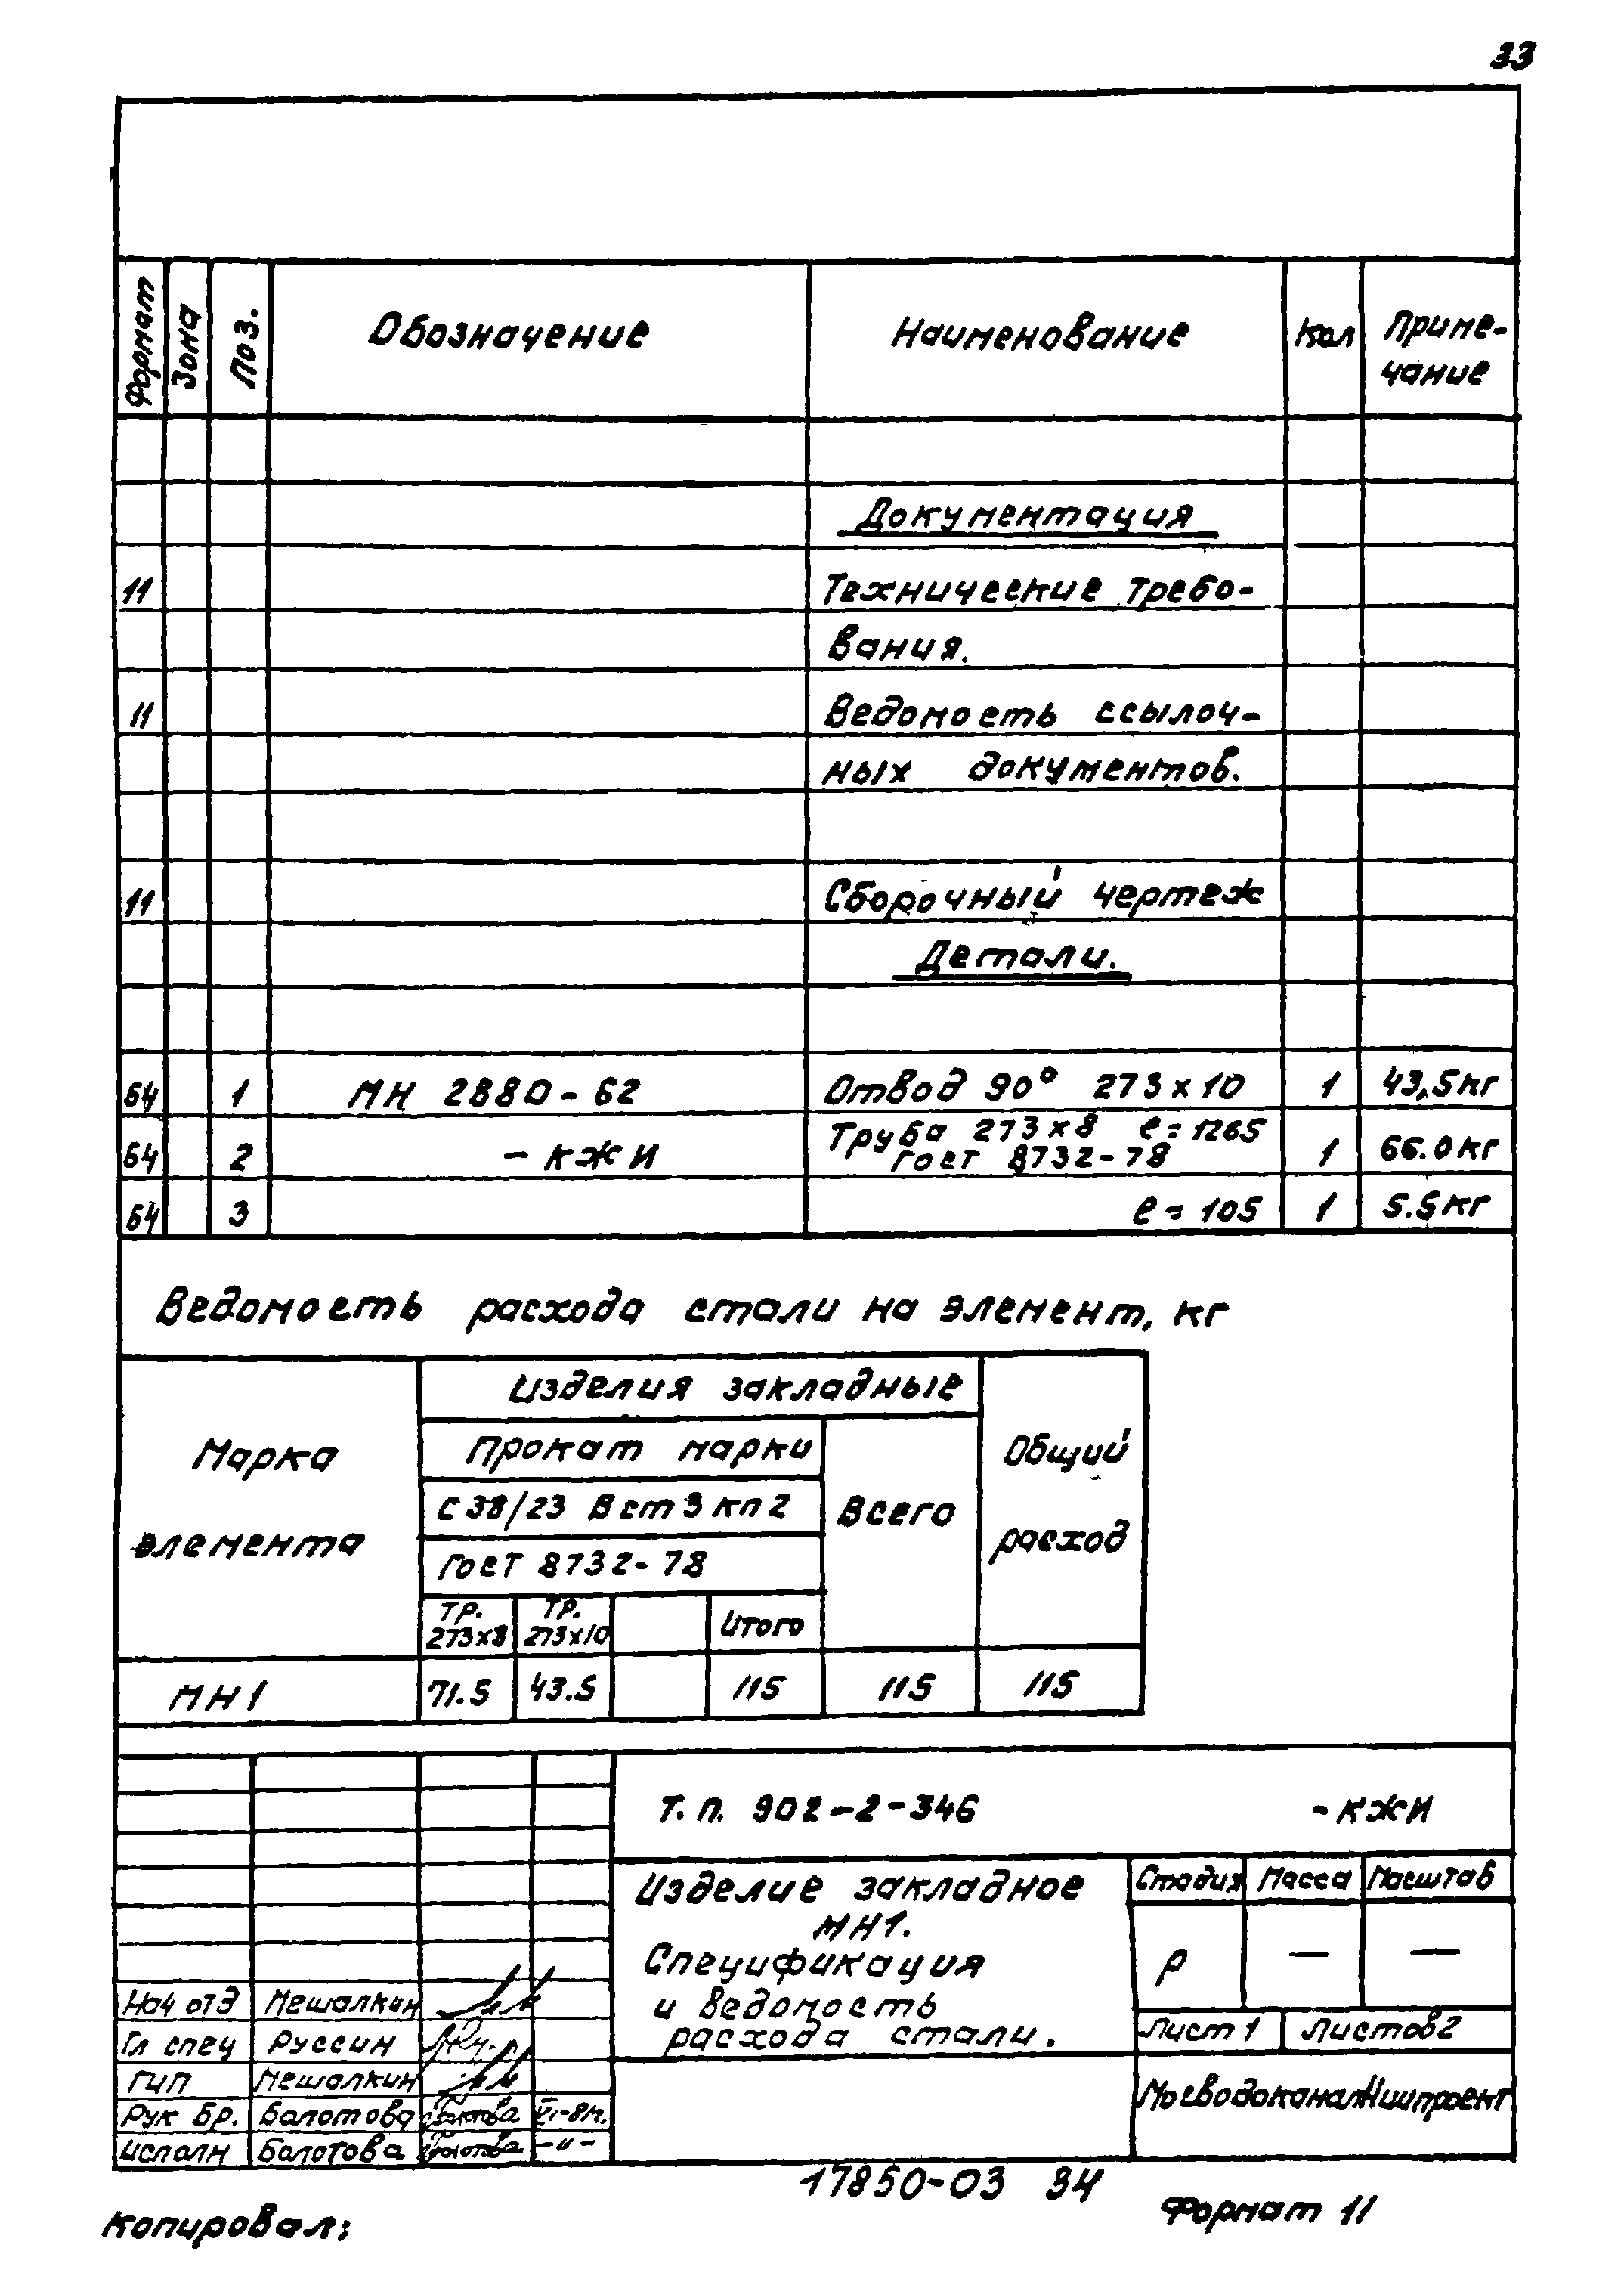 33
Формат Зона Поз. Обозначение Наименование Кол Приме-
чание
Документация
11 Технические требо-
вания.
11 Ведомость ссылоч-
ных документов.
11 Сборочный чертеж
Детали.
Б4 1 МН 2880-62 Отвод 90° 273x10 1 43,5кг
Б4 2 - КЖИ Труба 273x8 ℓ=1265
ГОСТ 8732-78 1 66.0кг
Б4 3 ℓ=105 1 5.5кг
Ведомость расхода стали на элемент, кг
Марка
элемента
Изделия закладные
Прокат марки
С 38/23 ВСт3кп2
ГОСТ 8732-78
Тр.
273x8
Тр.
273x10
Итого
Всего
Общий
расход
МН1 71.5 43.5 115 115 115
Т.п. 902-2-346 - КЖИ
Изделие закладное
МН1.
Спецификация
и ведомость
расхода стали.
Стадия Масса Масштаб
Р — —
Лист 1 Листов 2
МосводоканалНиипроект
Нач отд Мешалкин
Гл спец Руссин
ГИП Мешалкин
Рук бр. Болотова
Исполн Болотова -"-
17850-03 34
Копировал: Формат 11